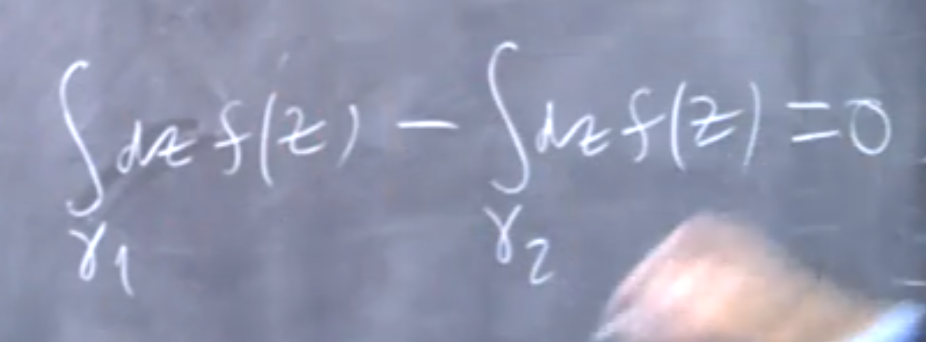 ∫_{γ₁} dz f(z) − ∫_{γ₂} dz f(z) = 0